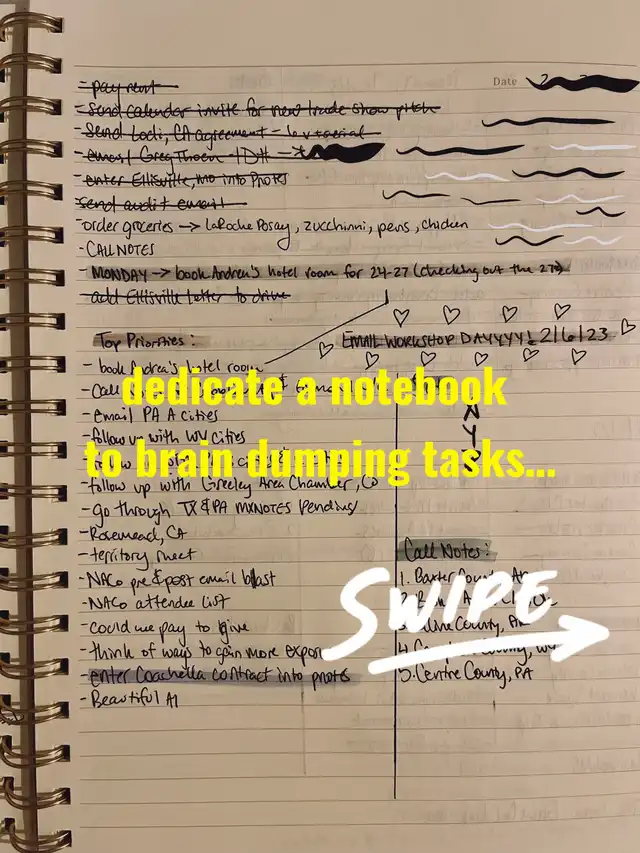 Date
- pay rent
- Send calendar invite for new trade show pitch
- Send Lodi, CA agreement - aerial
- email Greg
- enter Ellisville, MO into Pnotes
- send audit email
- order groceries → LaRoche Posay, zucchinni, pens, chicken
- CALL NOTES
- MONDAY → book Andrea's hotel room for 24-27 (checking out the 27th)
- add Ellisville Letter to drive
Top Priorities:
EMAIL WORKSHOP DAYYYY! 2/6/23
- book Andrea's hotel room
- Call
dedicate a notebook
- email PA A cities
- follow up with WV cities
to brain dumping tasks...
- follow up with Greeley Area Chamber, CO
- go through TX & PA MXNOTES Pending
- Rosemead, CA
- territory sheet
- NACo pre & post email blast
- NACo attendee list
- could we pay to give
- think of ways to gain more expos
- enter Coachella contract into pnotes
- Beautiful AI
Call Notes:
1. Baxter County, AR
SWIPE
5. Centre County, PA